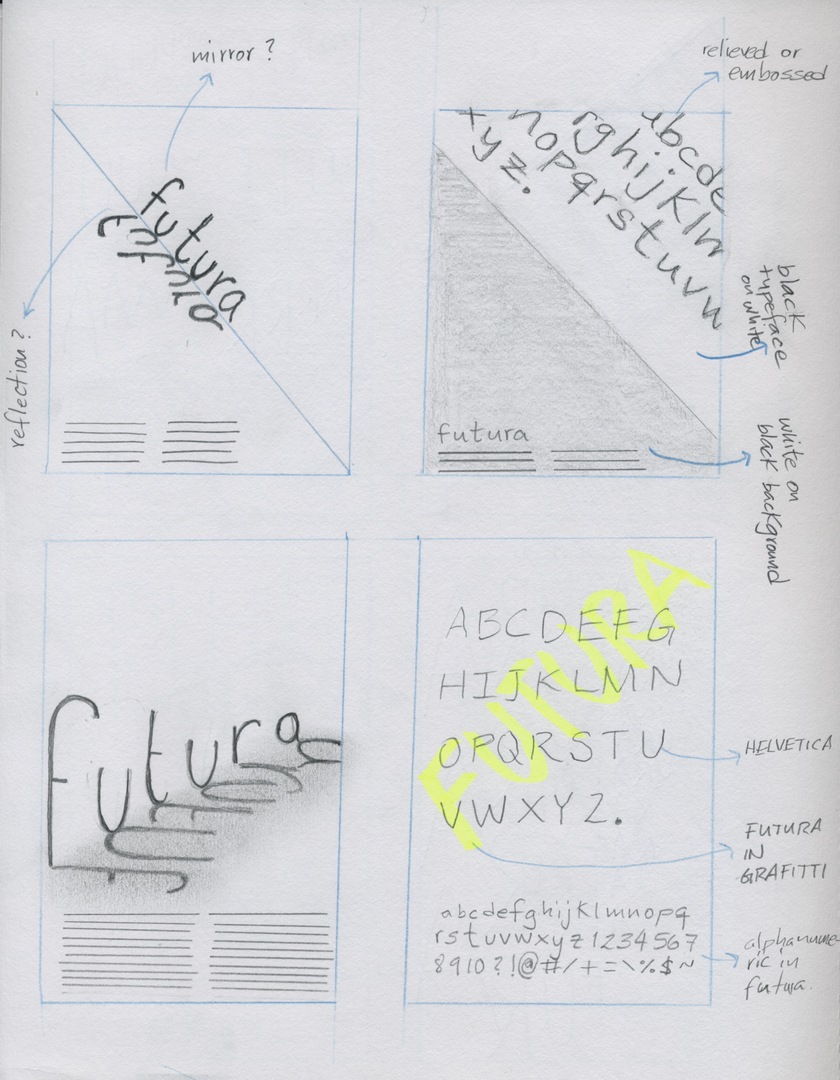 mirror ?
futura
futura
reflection ?
relieved or
embossed
abcde
rghijklm
nopqrstuvw
xyz.
futura
black
typeface
on white
white on
black background
futura
futura
FUTURA
ABCDEFG
HIJKLMN
OPQRSTU
VWXYZ.
abcdefghijklmnopq
rstuvwxyz1234567
8910?!@#/+=\%$~
HELVETICA
FUTURA
IN
GRAFITTI
alphanume-
ric in
futura.